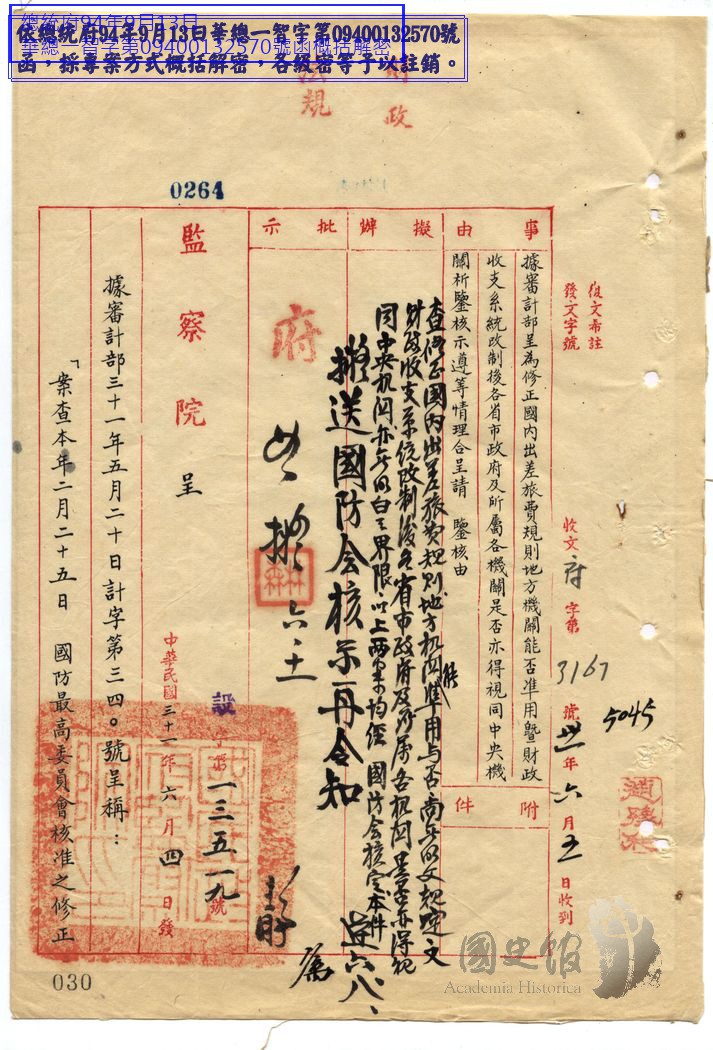 總統府94年9月13日
華總一智字第09400132570號函概括解密
依總統府94年9月13日華總一智字第09400132570號
函，採專案方式概括解密，各級密等予以註銷。
財政
法規
0264
復文希註
發文字號
收文府字第3167號
5045
卅一年六月五日收到
事由
據審計部呈為修正國內出差旅費規則地方機關能否準用暨財政
收支系統改制後各省市政府及所屬各機關是否亦得視同中央機
關析鑒核示遵等情理合呈請　鑒核由
附件
擬辦
查修正國內出差旅費規則地方机関能準用与否尚無明文規定又
財政收支系統改制後各省市政府及所属各机関是否亦得視
同中央机関亦無明白之界限以上兩案均經國防会核定本件
擬送國防会核示再令知
批示
府
如擬
六、十一
監察院呈
設字第一三五一九號
中華民國三十一年六月四日發
據審計部三十一年五月二十日計字第三四〇號呈稱：
「案查本年二月二十五日　國防最高委員會核准之修正
030
國史館
Academia Historica